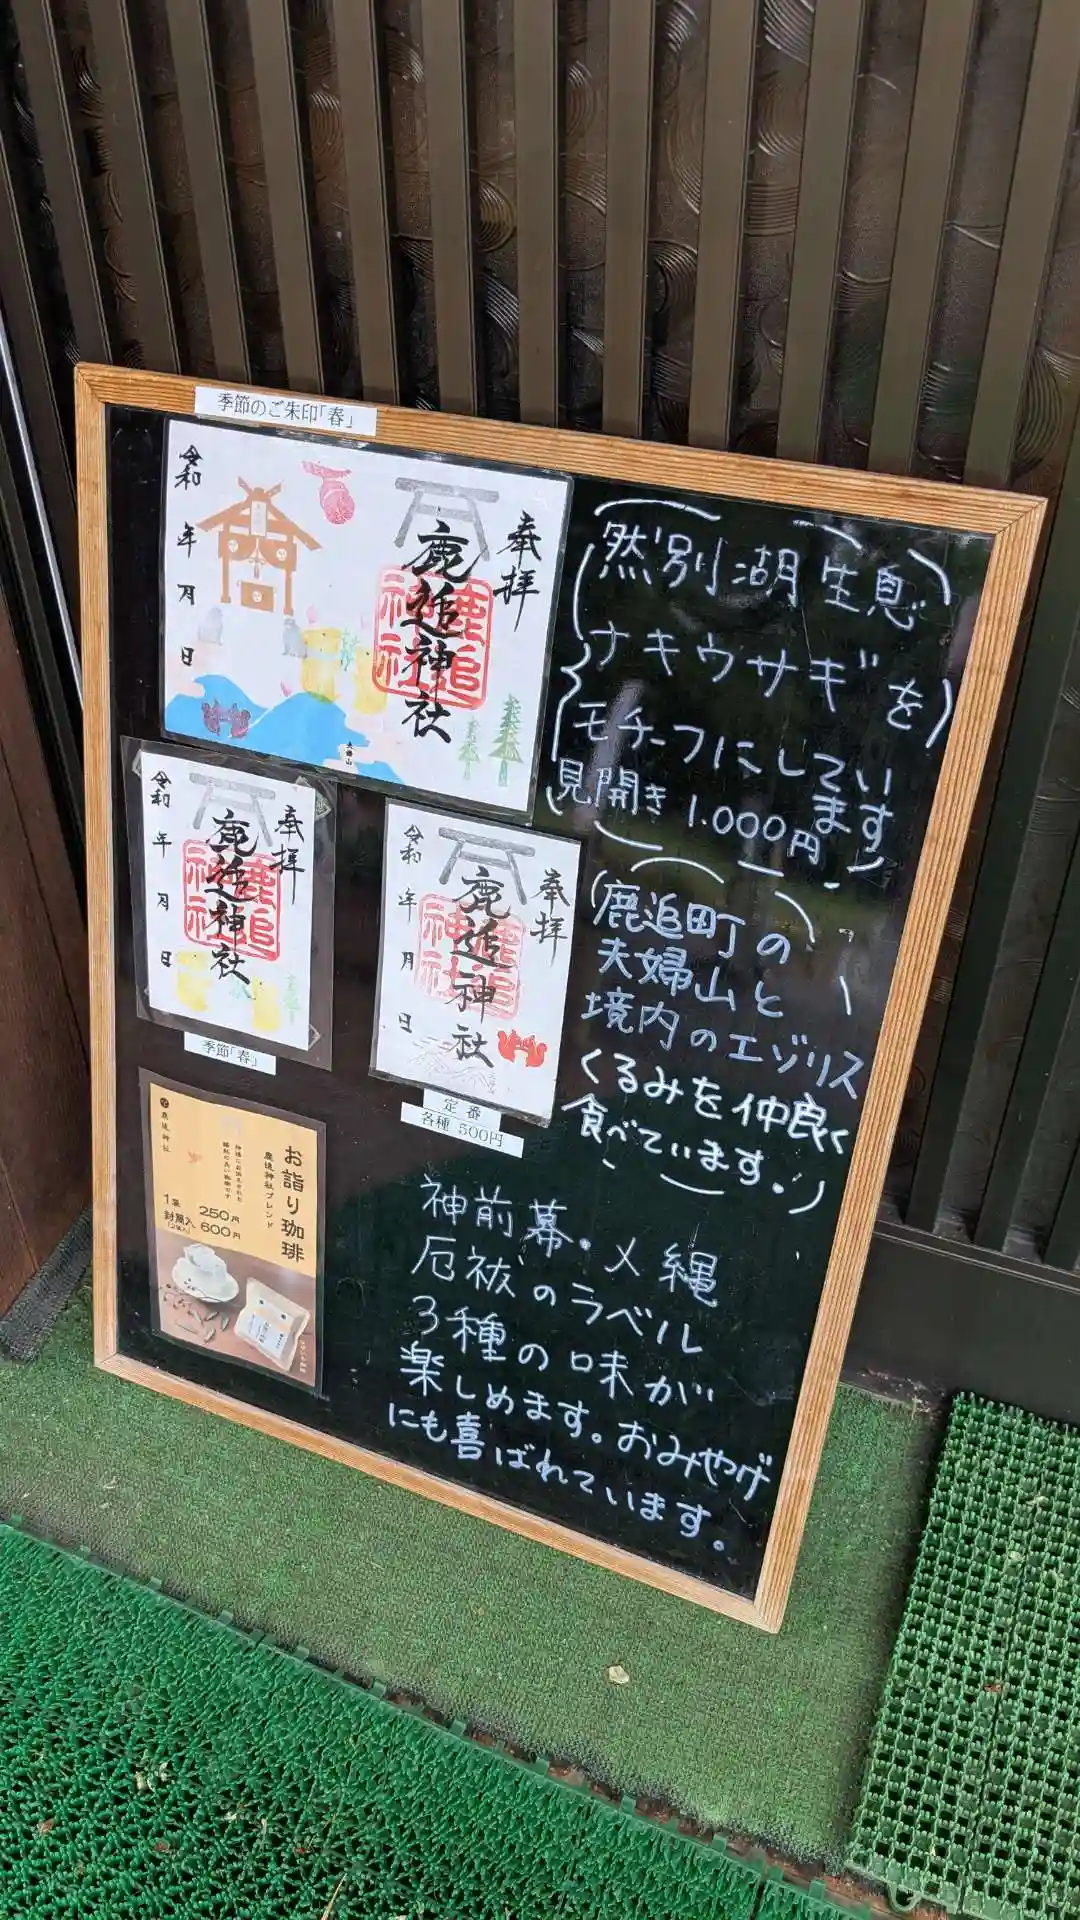 季節のご朱印「春」
奉拝
鹿追神社
鹿追
神社
令和 年 月 日
夫婦山
然別湖生息
ナキウサギを
モチーフにしてい
ます
見開き 1.000円
奉拝
鹿追神社
鹿追
神社
令和 年 月 日
季節「春」
奉拝
鹿追神社
鹿追
神社
令和 年 月 日
定番
各種 500円
鹿追町の
夫婦山と
境内のエゾリス
くるみを仲良く
食べています。
お詣り珈琲
鹿追神社ブレンド
1袋 250円
封筒入 600円
(2袋入)
鹿追神社
神前幕・〆縄
厄祓のラベル
3種の味が
楽しめます。おみやげ
にも喜ばれています。